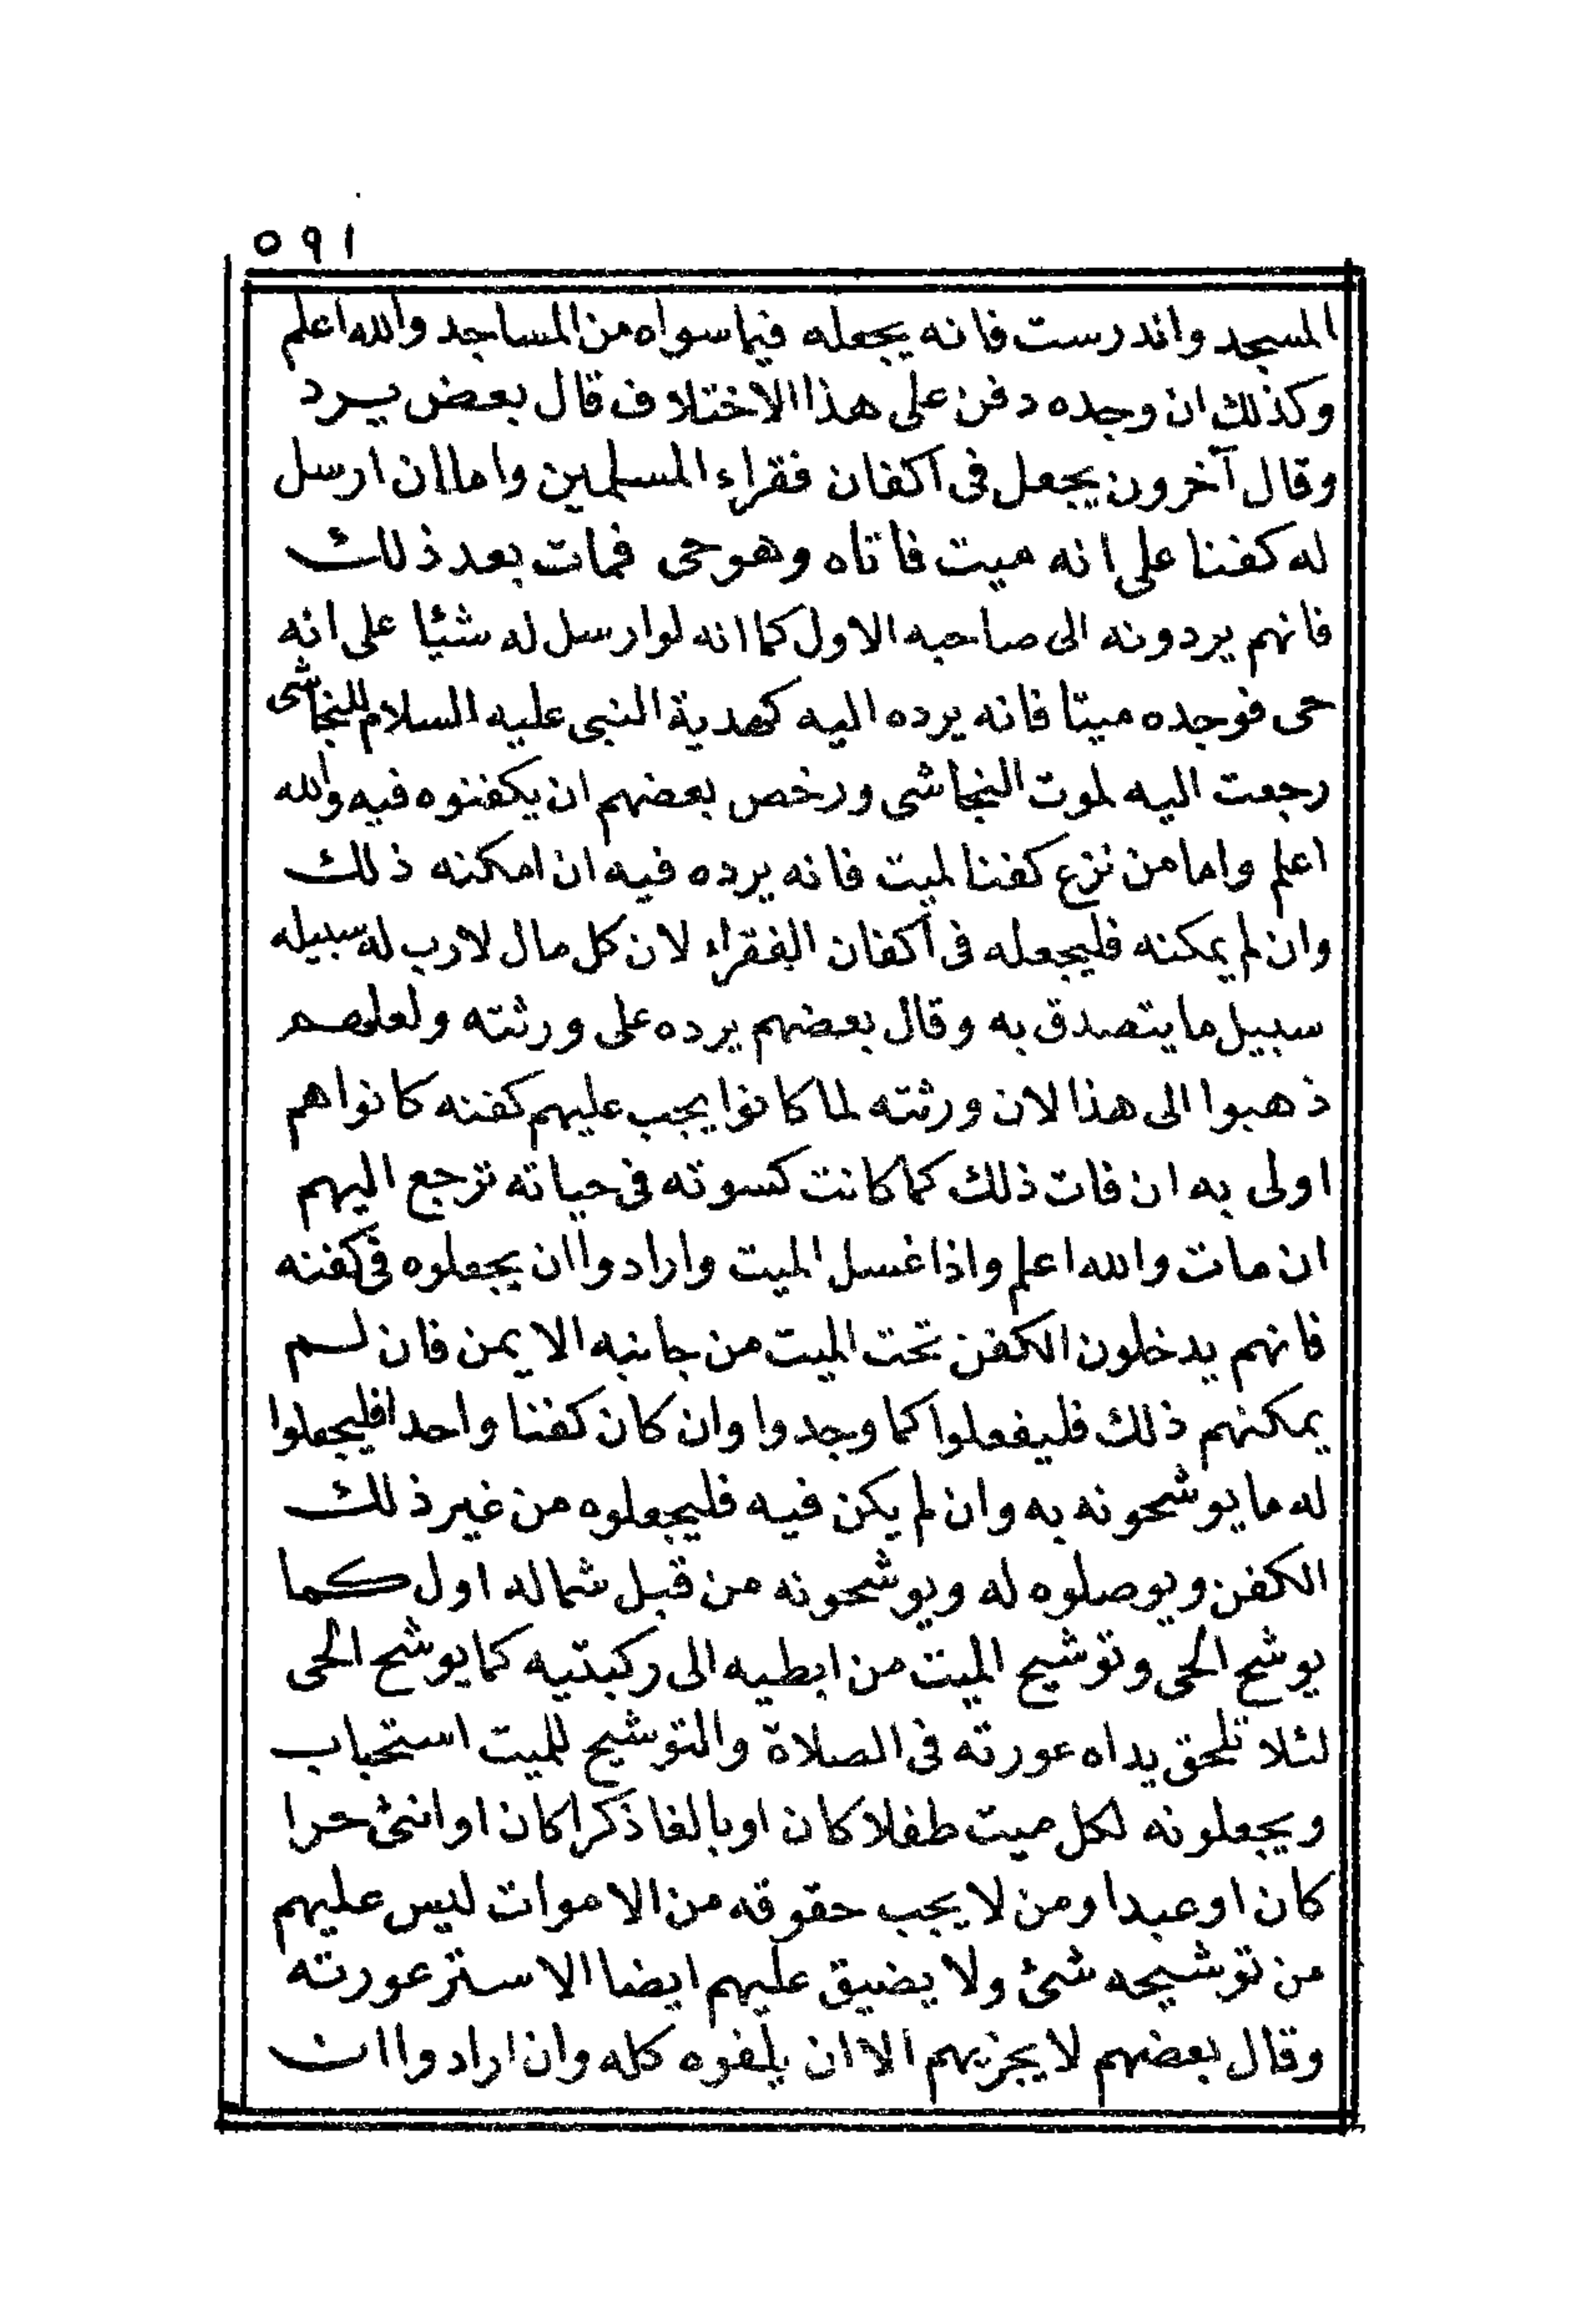 ٥٩١
المسجد واندرست فانه يجعله فيما سواه من المساجد والله اعلم
وكذلك ان وجده دفن على هذا الاختلاف قال بعض يرد
وقال آخرون يجعل فى اكفان فقراء المسلمين واما ان ارسل
له كفنا على انه ميت فاتاه وهو حى فمات بعد ذلك
فانهم يردونه الى صاحبه الاول كما انه لو ارسل له شيئا على انه
حى فوجده ميتا فانه يرده اليه كهدية النبى عليه السلام للنجاشى
رجعت اليه لموت النجاشى ورخص بعضهم ان يكفنوه فيه والله
اعلم واما من نزع كفنا لميت فانه يرده فيه ان امكنه ذلك
وان لم يمكنه فليجعله فى اكفان الفقراء لان كل مال لارب له سبيله
سبيل ما يتصدق به وقال بعضهم يرده على ورثته ولعلهم
ذهبوا الى هذا لان ورثته لما كانوا يجب عليهم كفنه كانوا هم
اولى به ان فات ذلك كما كانت كسوته فى حياته ترجع اليهم
ان مات والله اعلم واذا غسل الميت وارادوا ان يجعلوه فى كفنه
فانهم يدخلون الكفن تحت الميت من جانبه الايمن فان لم
يمكنهم ذلك فليفعلوا كما وجدوا وان كان كفنا واحدا فليجعلوا
له ما يوشحونه به وان لم يكن فيه فليجعلوه من غير ذلك
الكفن ويوصلوه له ويوشحونه من قبل شماله اول كما
يوشح الحى وتوشيح الميت من ابطيه الى ركبتيه كما يوشح الحى
لئلا تلحق يداه عورته فى الصلاة والتوشيح للميت استحباب
ويجعلونه لكل ميت طفلا كان او بالغا ذكرا كان او انثى حرا
كان او عبدا ومن لا يجب حقوقه من الاموات ليس عليهم
من توشيحه شئ ولا يضيق عليهم ايضا الا ستر عورته
وقال بعضهم لا يجزيهم الا ان يلفوه كله وان ارادوا ان